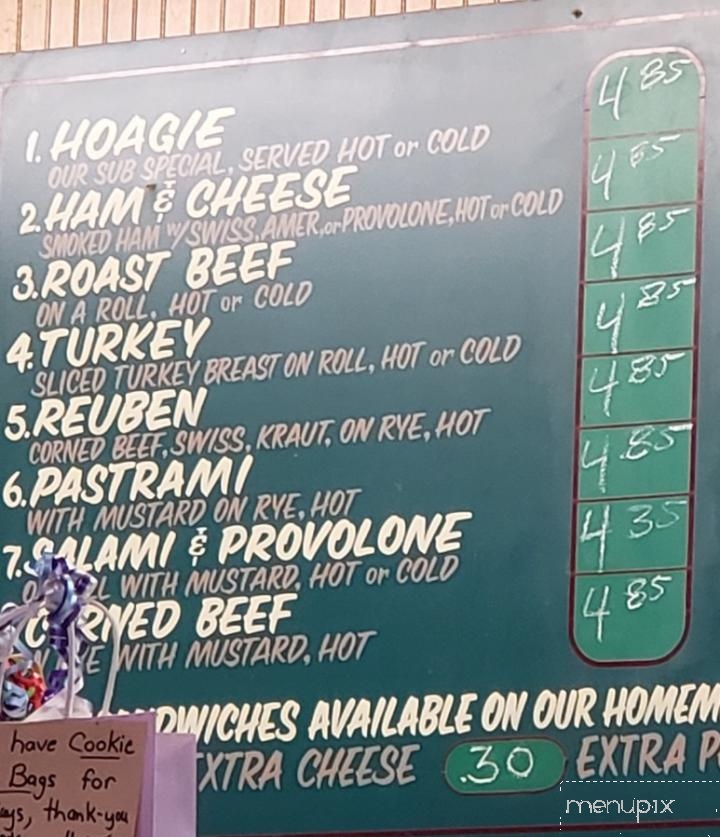 1. HOAGIE 4 85
OUR SUB SPECIAL, SERVED HOT or COLD
2. HAM & CHEESE 4 85
SMOKED HAM W/ SWISS, AMER, or PROVOLONE, HOT or COLD
3. ROAST BEEF 4 85
ON A ROLL. HOT or COLD
4. TURKEY 4 85
SLICED TURKEY BREAST ON ROLL, HOT or COLD
5. REUBEN 4 85
CORNED BEEF, SWISS, KRAUT, ON RYE, HOT
6. PASTRAMI 4.85
WITH MUSTARD ON RYE, HOT
7. SALAMI & PROVOLONE 4 35
WITH MUSTARD, HOT or COLD
CORNED BEEF 4 85
WITH MUSTARD, HOT
AVAILABLE ON OUR
EXTRA CHEESE .30 EXTRA
have Cookie
Bags for
thank-you
menupix